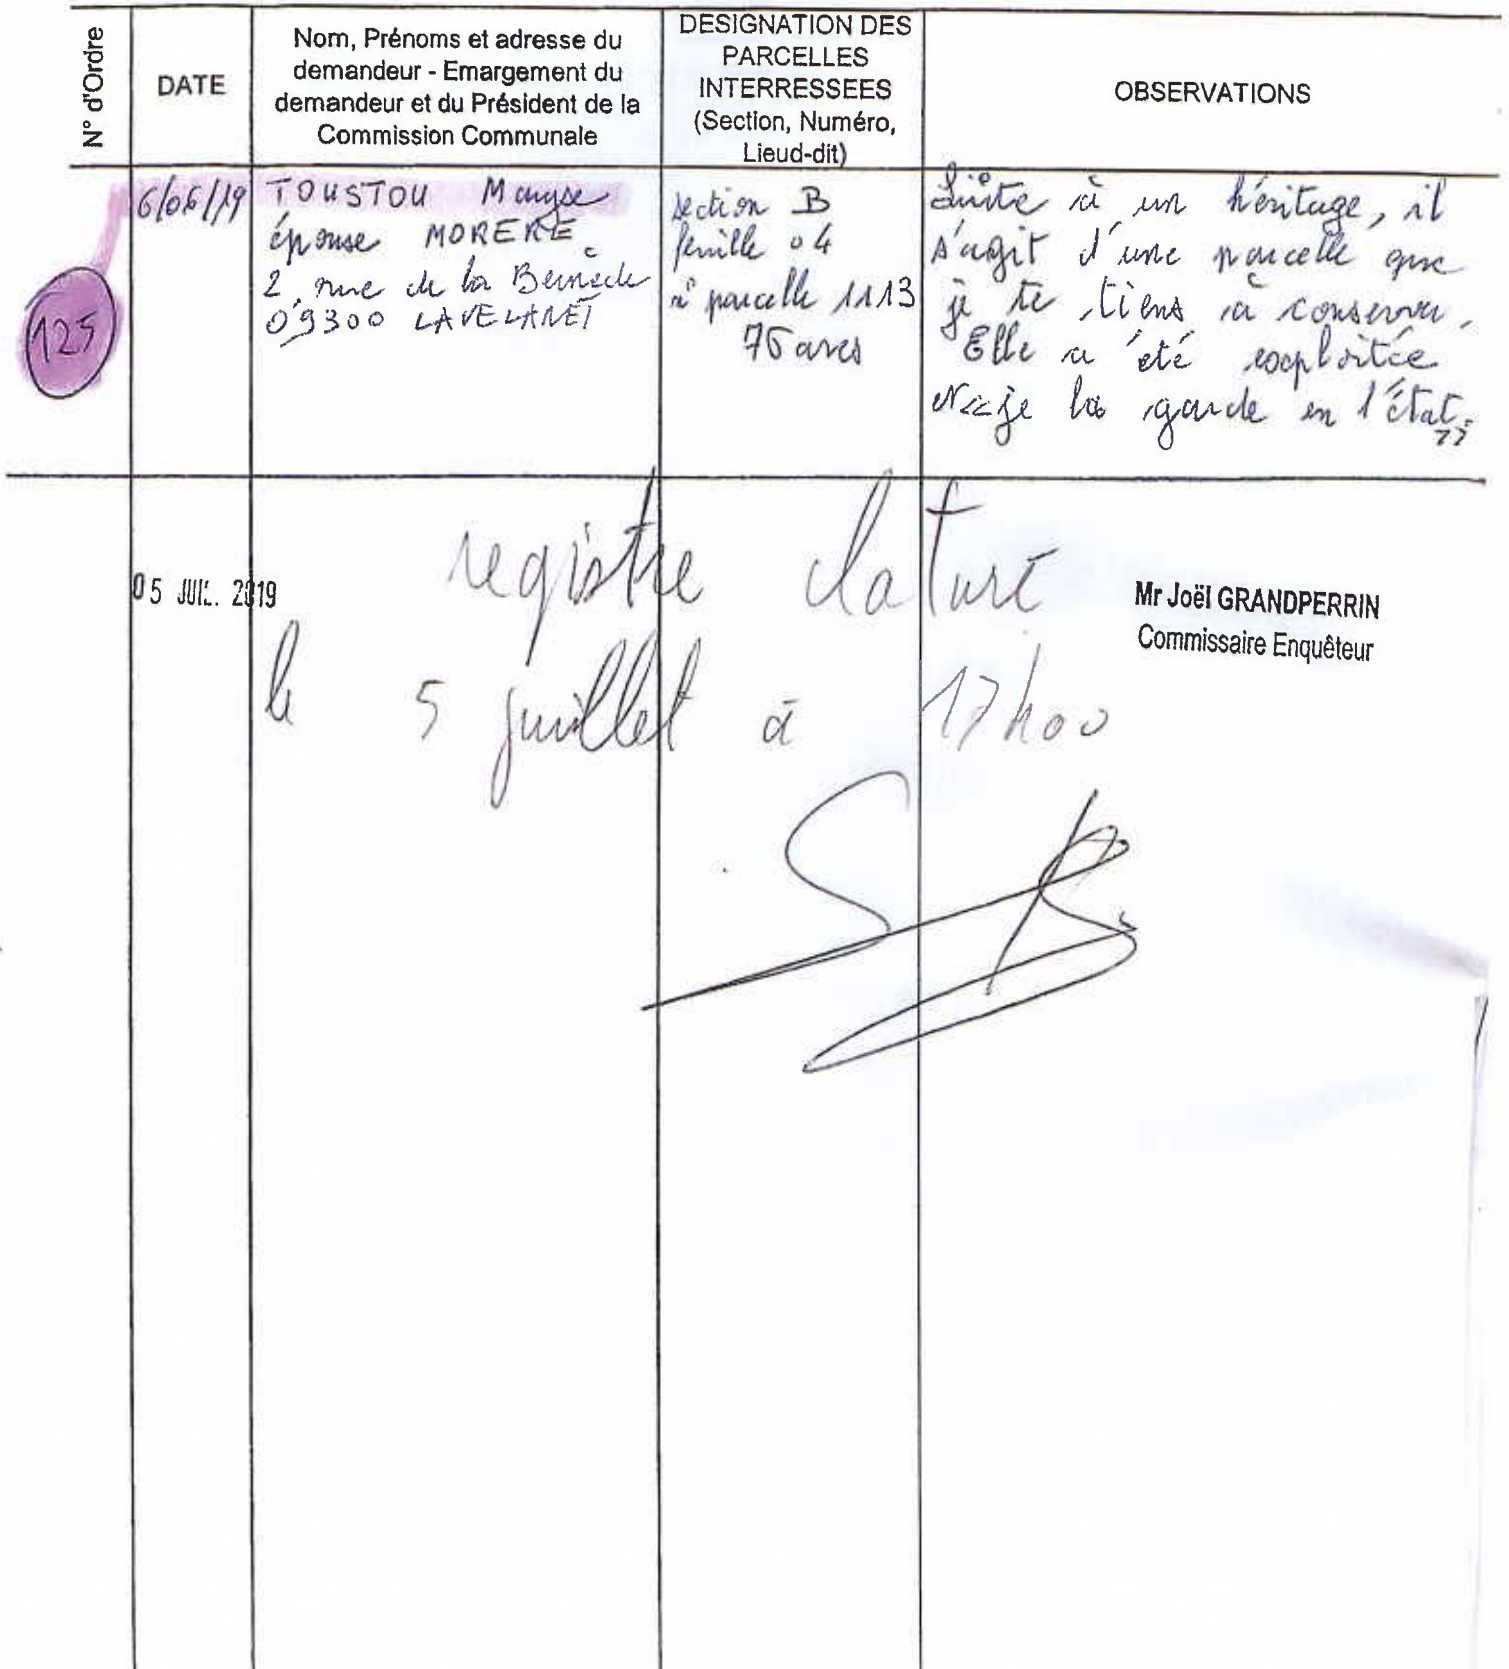 N° d'Ordre
DATE
Nom, Prénoms et adresse du
demandeur - Emargement du
demandeur et du Président de la
Commission Communale
DESIGNATION DES
PARCELLES
INTERRESSEES
(Section, Numéro,
Lieud-dit)
OBSERVATIONS
125
6/06/19
TOUSTOU Maryse
épouse MORERE
2, rue de la Bernède
09300 LAVELANET
section B
feuille 04
n° parcelle 1113
76 ares
Suite à un héritage, il
s'agit d'une parcelle que
je te tiens à conserver.
Elle a été exploitée
je la garde en l'état.
registre cloturé
05 JUIL. 2019
Mr Joël GRANDPERRIN
Commissaire Enquêteur
le 5 juillet à 17h00